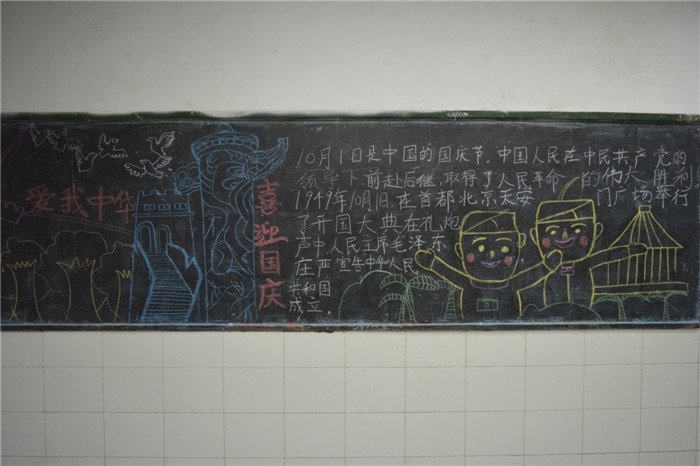 爱我中华
喜迎国庆
10月1日是中国的国庆节.中国人民在中民共产党的
领导下,前赴后继,取得了人民革命的伟大胜利
1949年10月1日.在首都北京天安门广场举行
了开国大典在礼炮
声中人民主席毛泽东
庄严宣告中华人民
共和国
成立.